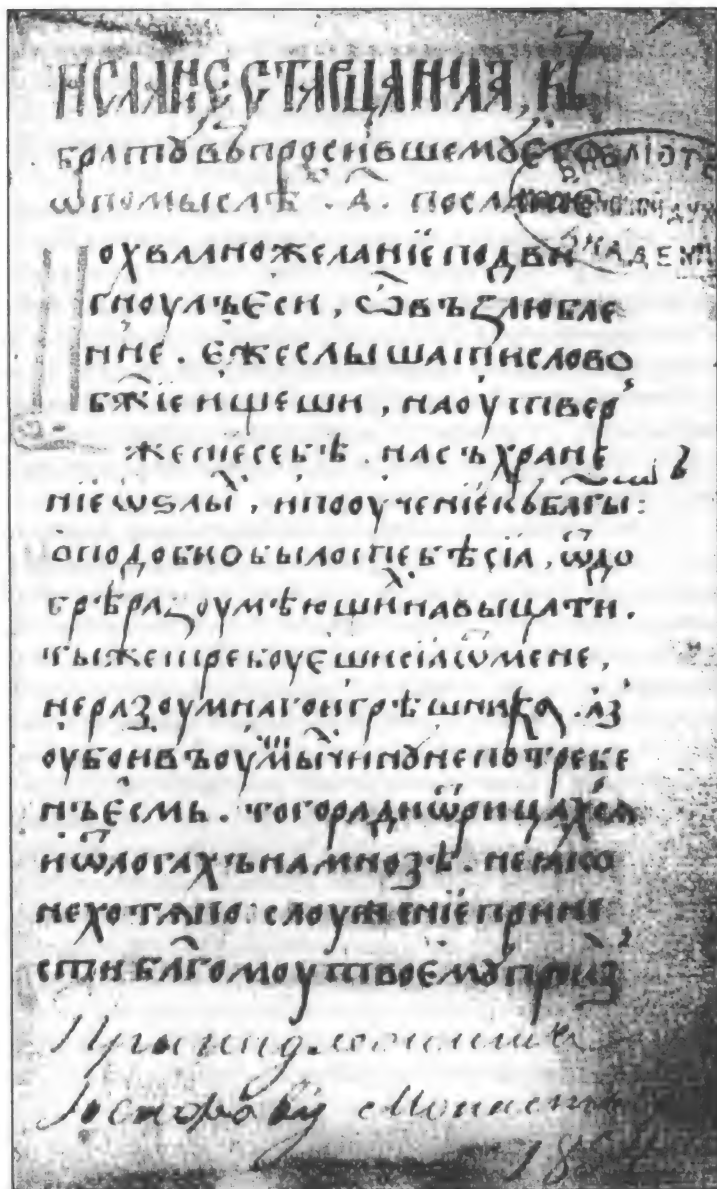 ИСАНЇЕ СТАРЦА НИЛА, КЪ
братꙋ въпросившемꙋ єгѡ
ѡ помыслѣⷯ. а҃. посланїе
охвално желанїе подви
гноулъ єси, ѡ възлюбле
нне. єже слышати слово
бж҃їе ищеши, на оутвер
женїе себѣ. на съхране
нїе ѿ ѕлыⷯ, и пооученїе къ бл҃гы:
о подобно было тебѣ сїа, ѿ до
брѣ разоумѣющиⷯ навыцати.
ты же требоуєши сїа ѿ мене,
неразоумнаго и грѣшника. аз
оубо и въ чинꙋ непотребе
нъ єсмь. того ради ѿрицахсѧ
и ѿлогахъ на мнозѣ. не ꙗко
не хотѧ по: слоуженїе прине
сти бл҃гомоу твоємꙋ произ
БИБЛІОТЕ
ДУХ
АКАДЕМ